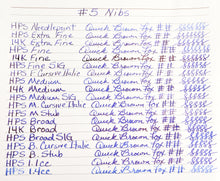 #5 Nibs
HPS Needlepoint Quick Brown Fox ## §§§§§§
HPS Extra Fine Quick Brown Fox ## §§§§§§
14K Extra Fine Quick Brown Fox ## §§§§§§
HPS Fine Quick Brown Fox ## §§§§§§
14K Fine Quick Brown Fox ## §§§§§§
HPS Fine SIG Quick Brown Fox ## §§§§§§
HPS F. Cursive Italic Quick Brown Fox ## §§§§§§
HPS Medium Quick Brown Fox ## §§§§§§
14K Medium Quick Brown Fox ## §§§§§§
HPS Medium SIG Quick Brown Fox ## §§§§§§
HPS M. Cursive Italic Quick Brown Fox ## §§§§§§
HPS M. Stub Quick Brown Fox ## §§§§§§
HPS Broad Quick Brown Fox ## §§§§§§
14K Broad Quick Brown Fox ## §§§§§§
HPS Broad SIG Quick Brown Fox ## §§§§§§
HPS B. Cursive Italic Quick Brown Fox ## §§§§§§
HPS B. Stub Quick Brown Fox ## §§§§§§
HPS 1.1cc Quick Brown Fox ## §§§§§§
HPS 1.4cc Quick Brown Fox ## §§§§§§